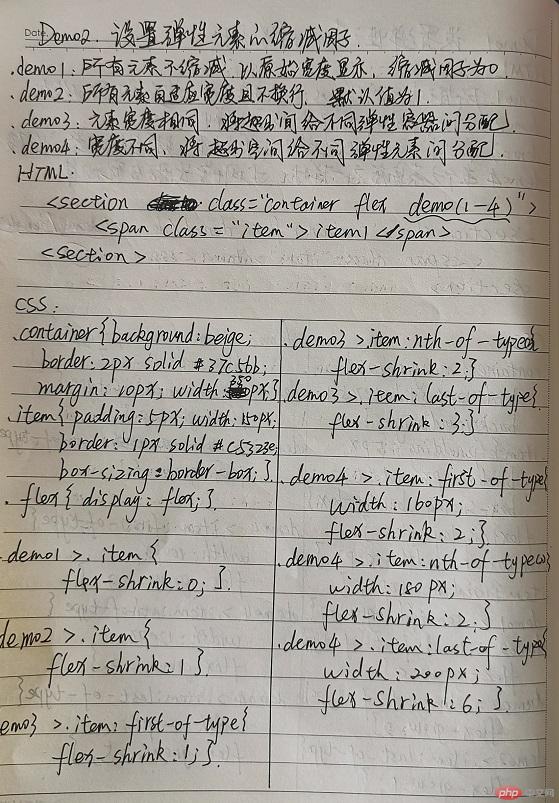 Date
Demo2. 设置弹性元素的缩减因子.
.demo1: 所有元素不缩减, 以原始宽度显示, 缩减因子为0.
.demo2: 所有元素自适应宽度且不换行, 默认值为1.
.demo3: 元素宽度相同, 将超出空间给不同弹性容器间分配.
.demo4: 宽度不同, 将超出空间给不同弹性元素间分配.
HTML.
<section class="container flex demo(1-4)">
<span class="item">item1</span>
<section>
CSS:
.container{background:beige;
border: 2px solid #37c56b;
margin: 10px; width: 330px;}
.item{padding: 5px; width: 150px;
border: 1px solid #c5323e;
box-sizing: border-box;}
.flex{display: flex;}.
.demo1 >.item{
flex-shrink: 0;}.
demo2 >.item{
flex-shrink: 1}.
emo3 >.item: first-of-type{
flex-shrink: 1;}.
.demo3 >.item:nth-of-type(2){
flex-shrink: 2;}
.demo3 >.item: last-of-type{
flex-shrink: 3;}
.demo4 >.item: first-of-type{
width: 160px;
flex-shrink: 2;}.
.demo4 >.item: nth-of-type(2){
width: 180px;
flex-shrink: 2;}
.demo4 >.item: last-of-type{
width: 200px;
flex-shrink: 6;}.
php 中文网